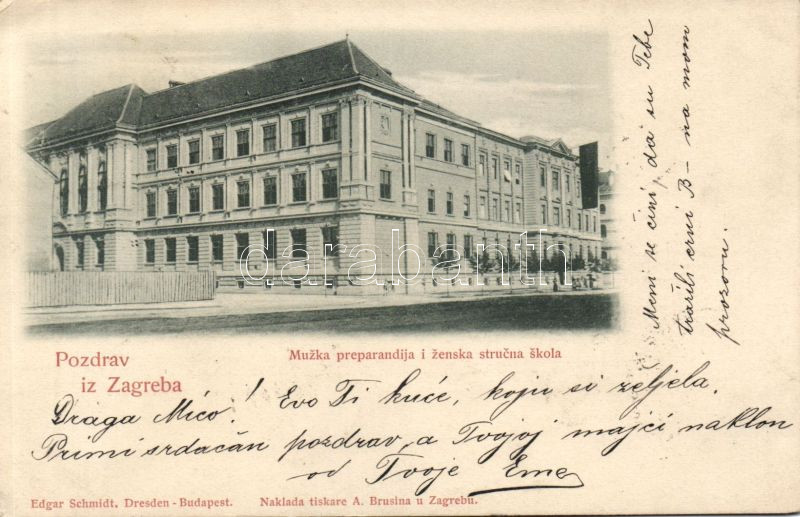 Meni se čini, da su Tebe
tražili crni B- na mom
prozoru.
darabanth
Pozdrav
iz Zagreba
Mužka preparandija i ženska stručna škola
Draga Mico! Evo Ti kuće, koju si zeljela.
Primi srdačan pozdrav, a Tvojoj majci naklon
od Tvoje Eme
Edgar Schmidt, Dresden - Budapest.
Naklada tiskare A. Brusina u Zagrebu.